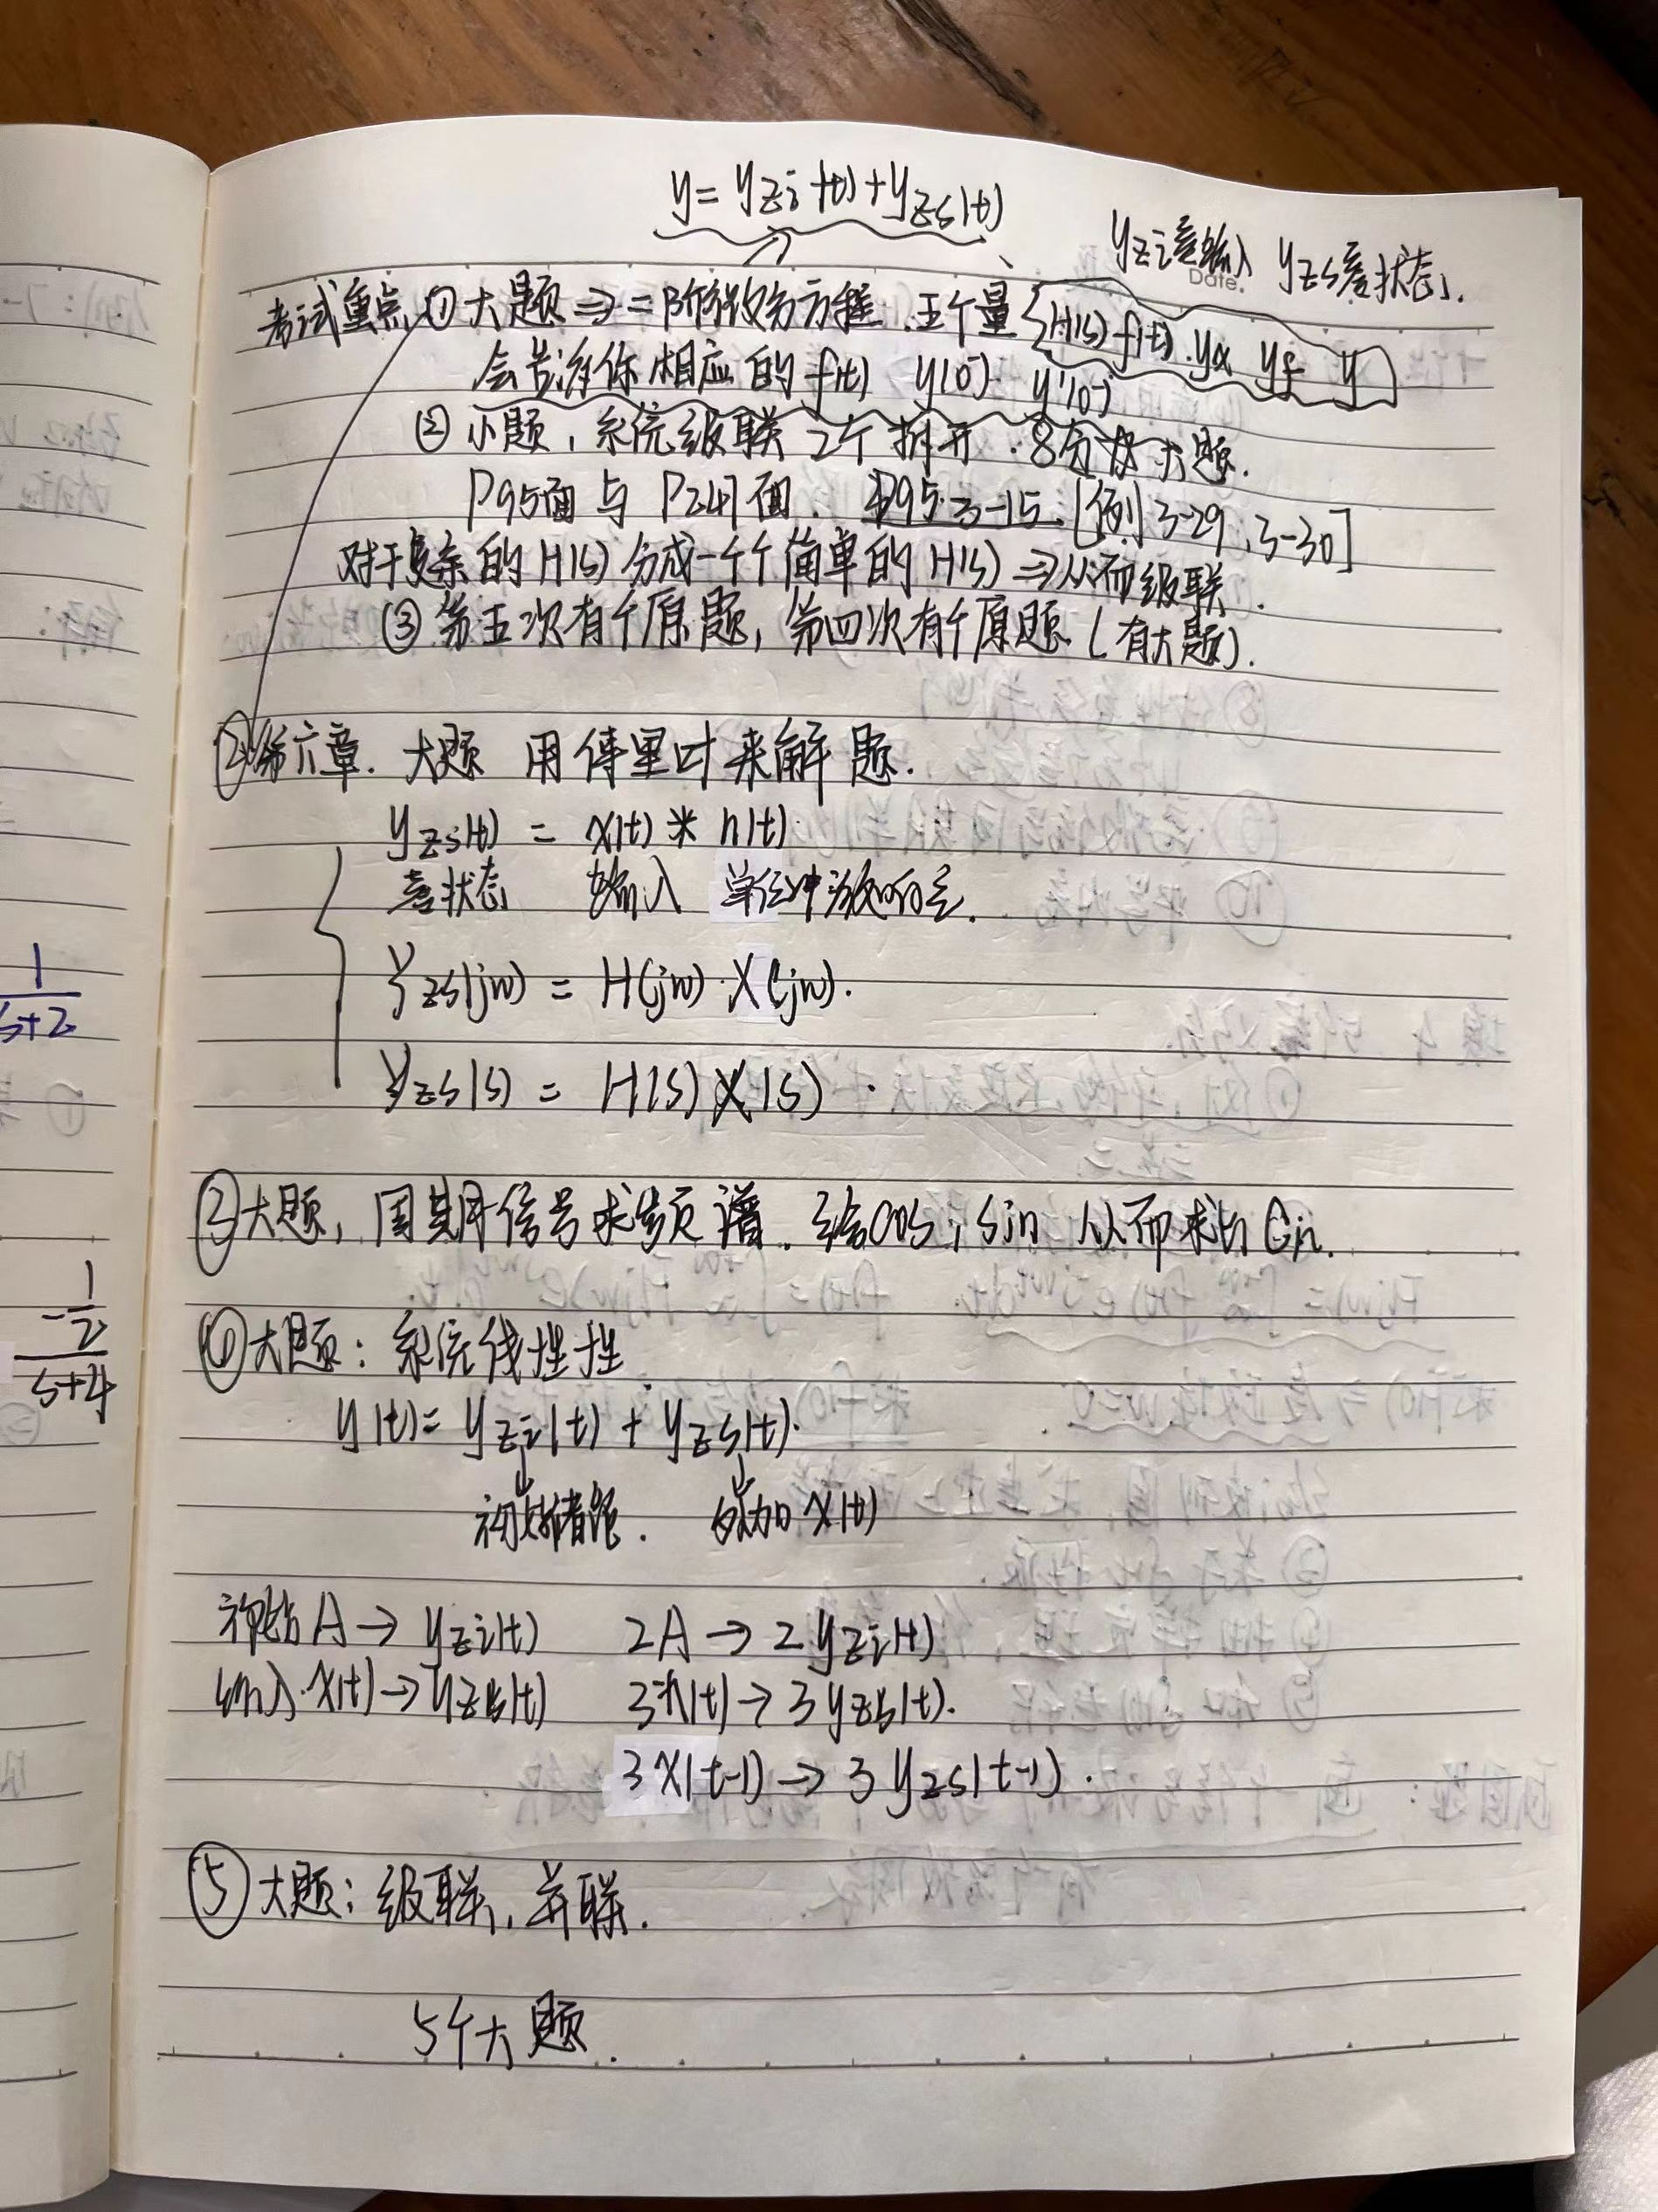 y = yzi(t) + yzs(t)
yzi零输入 yzs零状态.
Date.
考试重点 ① 大题 ⇒ 二阶微分方程. 五个量 {H(s) f(t). yx yf y
会告诉你相应的 f(t) y(0-) y'(0-)
② 小题, 系统级联 2个拆开. 8分 大题.
P95面与P241面. P95. 3-15. [例 3-29, 3-30]
对于复杂的H(s)分成一个个简单的H(s) ⇒ 从而级联.
③ 第五次有个原题, 第四次有个原题 (有大题).
② 第六章. 大题 用傅里叶来解题.
yzs(t) = x(t) * h(t).
零状态 输入 单位冲激响应.
Yzs(jw) = H(jw)·X(jw).
Yzs(s) = H(s) X(s).
③ 大题, 周期信号求频谱. 给cos, sin 从而求出 Cn.
④ 大题: 系统线性性
y(t) = yzi(t) + yzs(t).
↓ ↓
初始储能. 外加 x(t)
初始A → yzi(t) 2A → 2yzi(t)
输入x(t) → yzs(t) 3x(t) → 3yzs(t).
3x(t-1) → 3yzs(t-1).
⑤ 大题: 级联, 并联.
5个大题.
1
s+2
-1
2
s+4